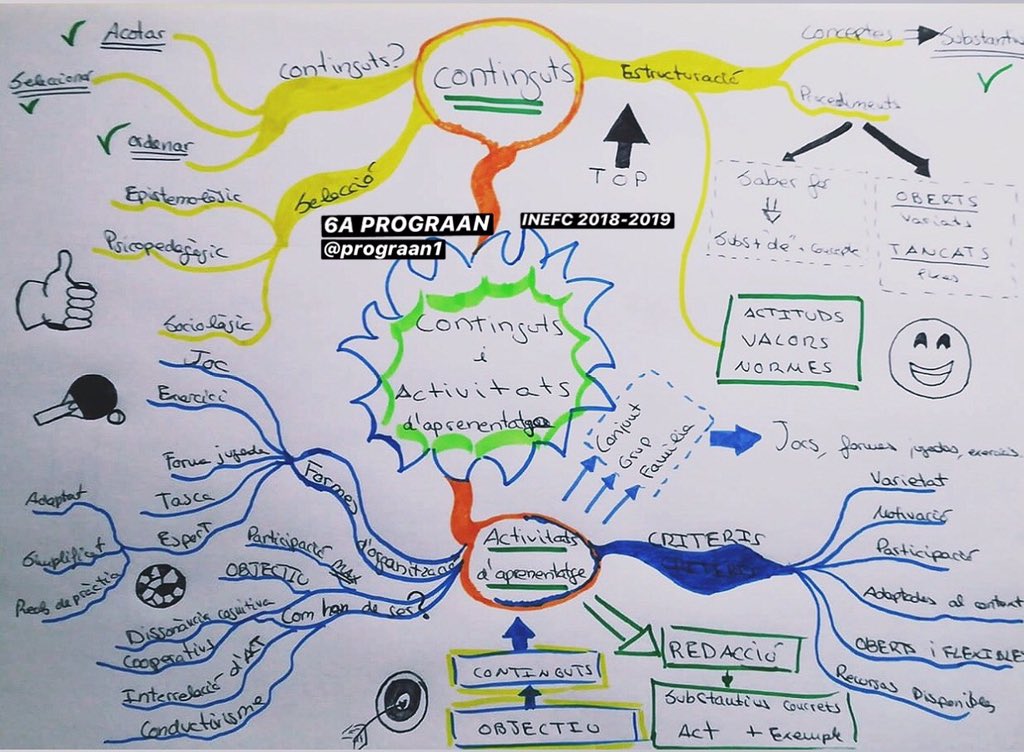 Acotar
Seleccionar
Ordenar
Continguts?
Continguts
Estructuració
Conceptes
Substantiu
Procediments
TOP
Saber fer
Subst "de" + concepte
OBERTS
Variats
TANCATS
Fixes
Selecció
Epistemològic
Psicopedagògic
Sociològic
6A PROGRAAN
@prograan1
INEFC 2018-2019
ACTITUDS
VALORS
NORMES
Continguts
i
Activitats
d'aprenentatge
Joc
Exercici
Forma jugada
Tasca
Esport
Adaptat
Simplificat
Formes d'organització
Conjunt
Grup
Familia
Jocs, formes jugades, exercicis.
Activitats
d'aprenentatge
CRITERIS
Varietat
Motivació
Participació
Adaptades al context
OBERTS i FLEXIBLES
Recursos Disponibles
Com han de ser?
Participació MAX
OBJECTIU
Dissonància cognitiva
Cooperatius
Interrelació d'ACT
Conductivisme
CONTINGUTS
OBJECTIU
REDACCIÓ
Substantius concrets
Act + Exemple